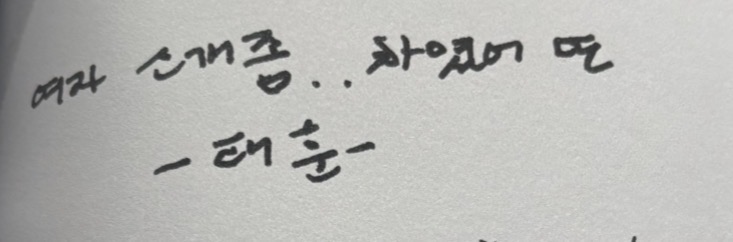 여자 소개좀.. 차였어 또
- 태훈 -